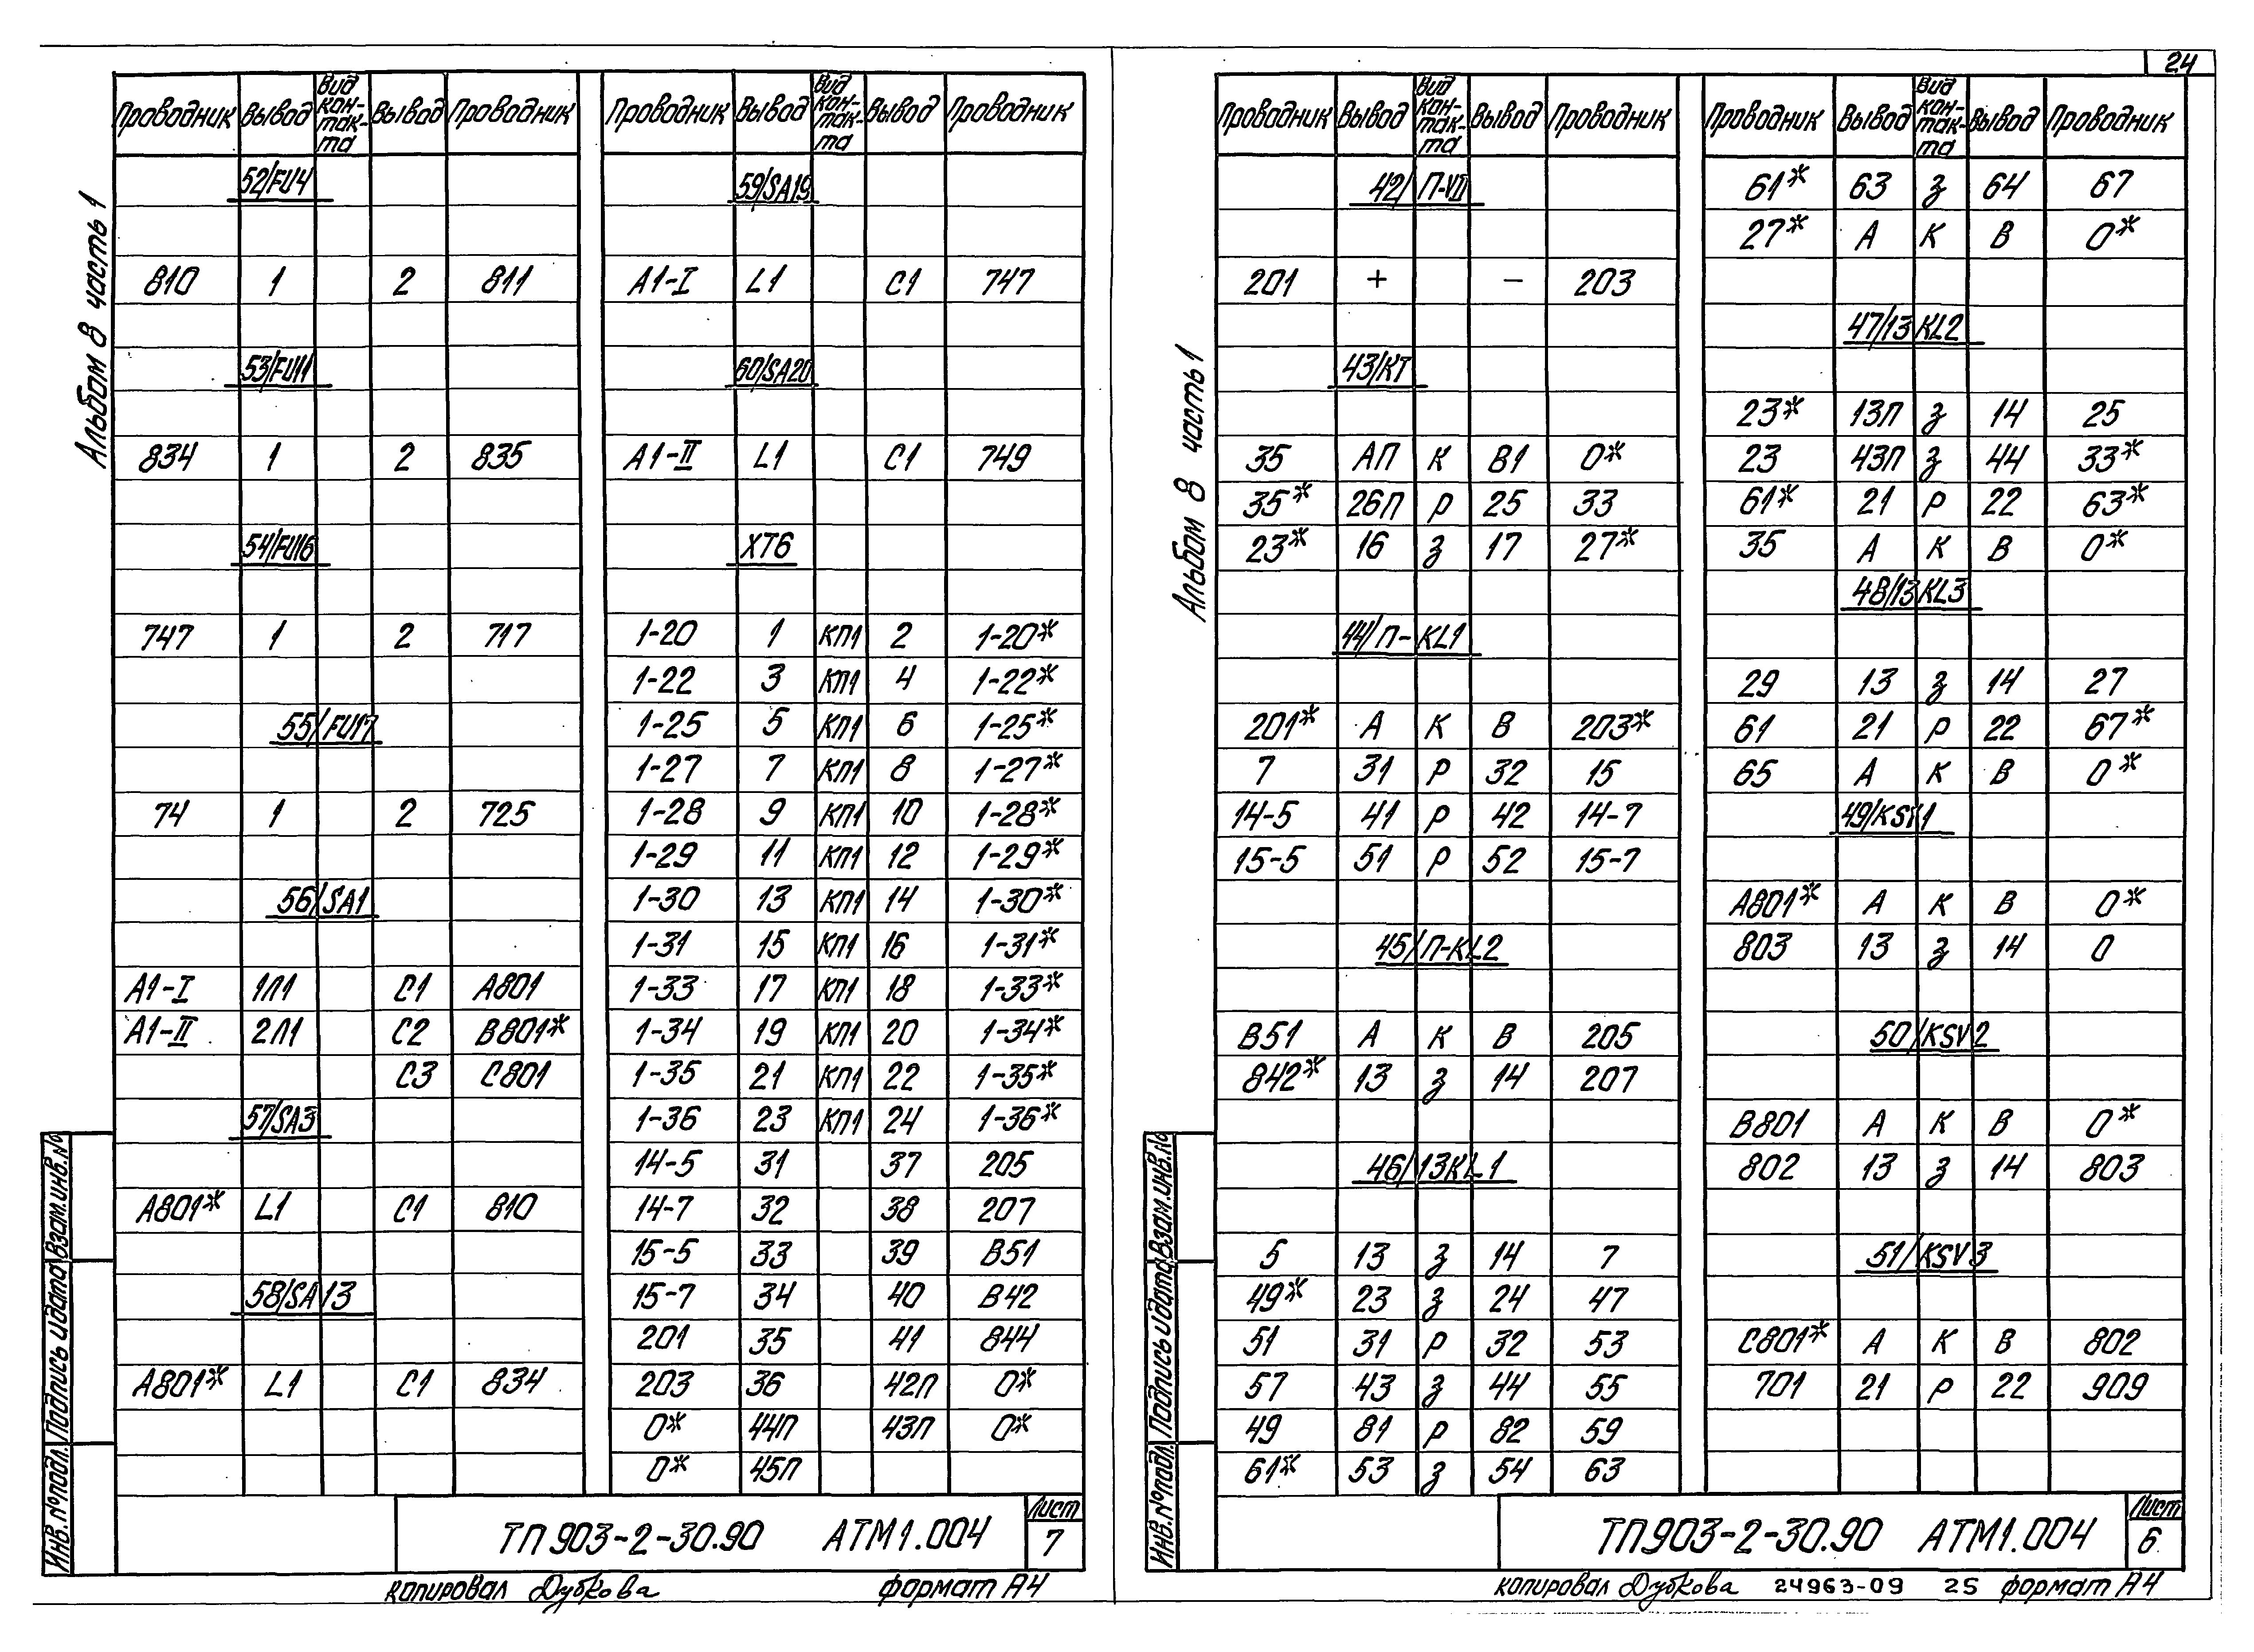 24
Альбом 8 часть 1
Проводник Вывод Вид контакта Вывод Проводник
52/FU4
810 1 2 811
53/FU11
834 1 2 835
54/FU16
747 1 2 717
55/FU17
74 1 2 725
56/SA1
А1-I 1Л1 С1 А801
А1-II 2Л1 С2 В801*
С3 С801
57/SA3
А801* L1 С1 810
58/SA13
А801* L1 С1 834
Проводник Вывод Вид контакта Вывод Проводник
59/SA19
А1-I L1 С1 747
60/SA20
А1-II L1 С1 749
ХТ6
1-20 1 КП1 2 1-20*
1-22 3 КП1 4 1-22*
1-25 5 КП1 6 1-25*
1-27 7 КП1 8 1-27*
1-28 9 КП1 10 1-28*
1-29 11 КП1 12 1-29*
1-30 13 КП1 14 1-30*
1-31 15 КП1 16 1-31*
1-33 17 КП1 18 1-33*
1-34 19 КП1 20 1-34*
1-35 21 КП1 22 1-35*
1-36 23 КП1 24 1-36*
14-5 31 37 205
14-7 32 38 207
15-5 33 39 В51
15-7 34 40 В42
201 35 41 844
203 36 42П 0*
0* 44П 43П 0*
0* 45П
Инв. № подл. Подпись и дата Взам. инв. №
ТП 903-2-30.90 АТМ1.004
Лист
7
копировал Дубкова формат А4
Альбом 8 часть 1
Проводник Вывод Вид контакта Вывод Проводник
42/П-VII
201 + − 203
43/КТ
35 АП К В1 0*
35* 26П Р 25 33
23* 16 З 17 27*
44/П-KL1
201* А К В 203*
7 31 Р 32 15
14-5 41 Р 42 14-7
15-5 51 Р 52 15-7
45/П-KL2
В51 А К В 205
842* 13 З 14 207
46/13KL1
5 13 З 14 7
49* 23 З 24 47
51 31 Р 32 53
57 43 З 44 55
49 81 Р 82 59
61* 53 З 54 63
Проводник Вывод Вид контакта Вывод Проводник
61* 63 З 64 67
27* А К В 0*
47/13KL2
23* 13П З 14 25
23 43П З 44 33*
61* 21 Р 22 63*
35 А К В 0*
48/13KL3
29 13 З 14 27
61 21 Р 22 67*
65 А К В 0*
49/KSV1
А801* А К В 0*
803 13 З 14 0
50/KSV2
В801 А К В 0*
802 13 З 14 803
51/KSV3
С801* А К В 802
701 21 Р 22 909
Инв. № подл. Подпись и дата Взам. инв. №
ТП 903-2-30.90 АТМ1.004
Лист
6
копировал Дубкова 24963-09 25 формат А4